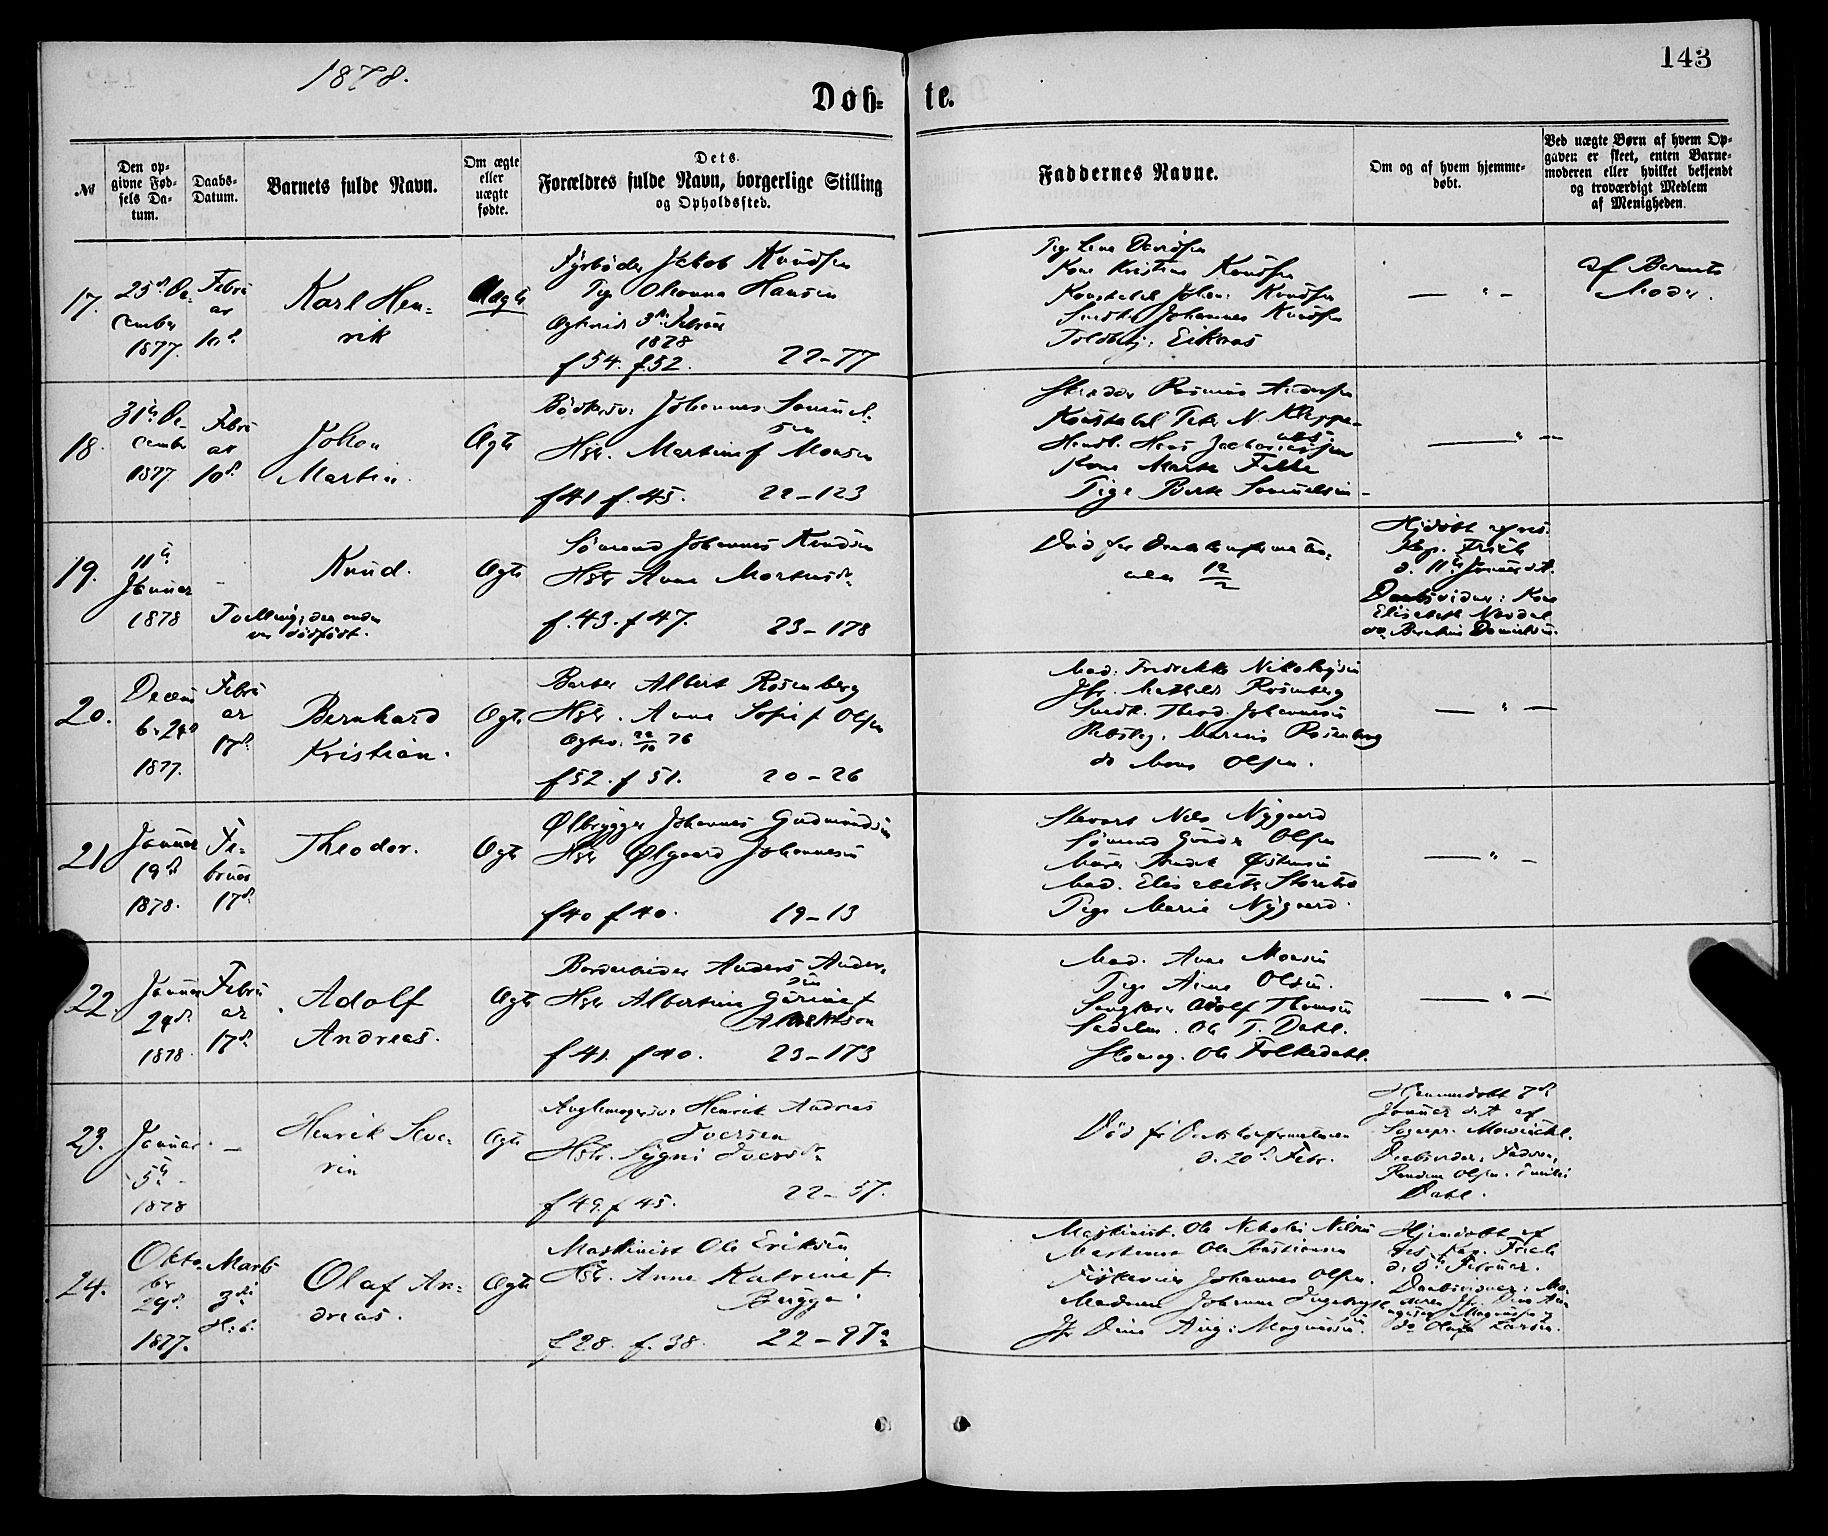 1878.
143
Døb-
te.
№
Den op-
givne Fød-
sels Da-
tum.
Daabs-
Datum.
Barnets fulde Navn.
Om ægte
eller
uægte
fødte.
Dets
Forældres fulde Navn, borgerlige Stilling
og Opholdssted.
Faddernes Navne.
Om og af hvem hjemme-
døbt.
Ved uægte Børn af hvem Op-
gaven er skeet, enten Barne-
moderen eller hvilket bekjendt
og troværdigt Medlem
af Menigheden.
17.
25de De-
cember
1877.
Febru
ar
10d
Karl Hen-
rik
Uægte
Fyrbøder Jakob Knudsen
Pige Hansen
3die Februar
1878
f 54. f 52. 22-77
Pige Lena Davidsen
Kone Kristine Knudsen
Konstabel Johan Knudsen
Johannes Knudsen
Eiknas
— " —
af Barnets
Moder.
18.
31te De-
cember
1877.
Febru
ar
10d
Johan
Martin.
Ægte
Bødkersv. Johannes Samuel-
sen
Hstr. Martine f Monsen
f 41 f. 45. 22-123
Rasmus Andersen
Konstabel Peter N. Kleppe-
Handl. Hans Zachariassen
Kone Marte
Pige Berte Samuelsen
— " —
19.
11te
Januar
1878
-
Tvilling, den anden
var dødfødt.
Knud.
Ægte
Sømand Johannes Knudsen
Hstr Anne Mortensdr.
f. 43. f 47. 23-178
Død før Daabskonfirmatio-
nen 12/2
Hjdøbt af res.
Kap. Frich
d. 11te Januar d. A.
Daabsvidner: Kone
Elisabeth Nesdal
do Danielsen.
20.
Decem
b. 24d
1877.
Febru
ar
17d.
Bernhard
Kristian.
Ægte
Barber Albert Rosenberg
Hstr. Anne Sofie f Olsen
Ægtev. 22/10 76
f 52. f 51. 20-26
Mad. Fredrikke Nikolaysen
Jfr. Mathilde Rosenberg
Snedk. Theod. Johannesen
Marius Rosenberg
do Mons Olsen.
— " —
21
Januar
19d
1878.
Fe-
bruar
17d.
Theodor.
Ægte
Ølbrygger Johannes Gudmundsen
Hstr Ølgaard Johannesen
f 40 f 40. 19-13
Stevart Nils Nygaard
Sømand Olsen
Murer Østensen
Mad. Elisabeth
Pige Marie Nygaard.
— " —
22.
Januar
24d.
1878.
Febru
ar
17d.
Adolf
Andreas.
Ægte
Bordarbeider Anders Ander-
sen
Hstr Albertine Gurine f
Albertsen
f 41. f 40. 23-173
Mad. Anne Monsen
Pige Olsen.
Adolf Thomsen
Sadelm. Ole T. Dahl.
Skomag. Ole Folkedahl.
— " —
23.
Januar
5te
1878
—
Henrik Seve-
rin
Ægte
Henrik Andreas
Iversen
Hstr. Sygni Iversdr.
f 49. f 45. 22-57.
Død før Daabskonfirmationen
d. 20d Febr.
Hjemmedøbt 7d
Januar d. A af
Sogepr. Mowinckl.
Daabsvidner: Faderen,
Olsen.
Dahl.
24.
Okto-
ber
29d.
1877.
Marts
3die
Olaf An-
dreas.
Ægte
Maskinist Ole Eriksen
Hstr. Anne Katrine f.
Brygge
f 28. f. 38. 22-97a
Maskinist. Ole Nikolai Nilsen
Ole
Johannes Olsen.
Madame Johanne
Jfr Dina Aug: Magnussen
Hjemdøbt af
res. Kap. Frich
d. 5te Februar.
Daabsvidner: Ma-
do Olufa Larsen.